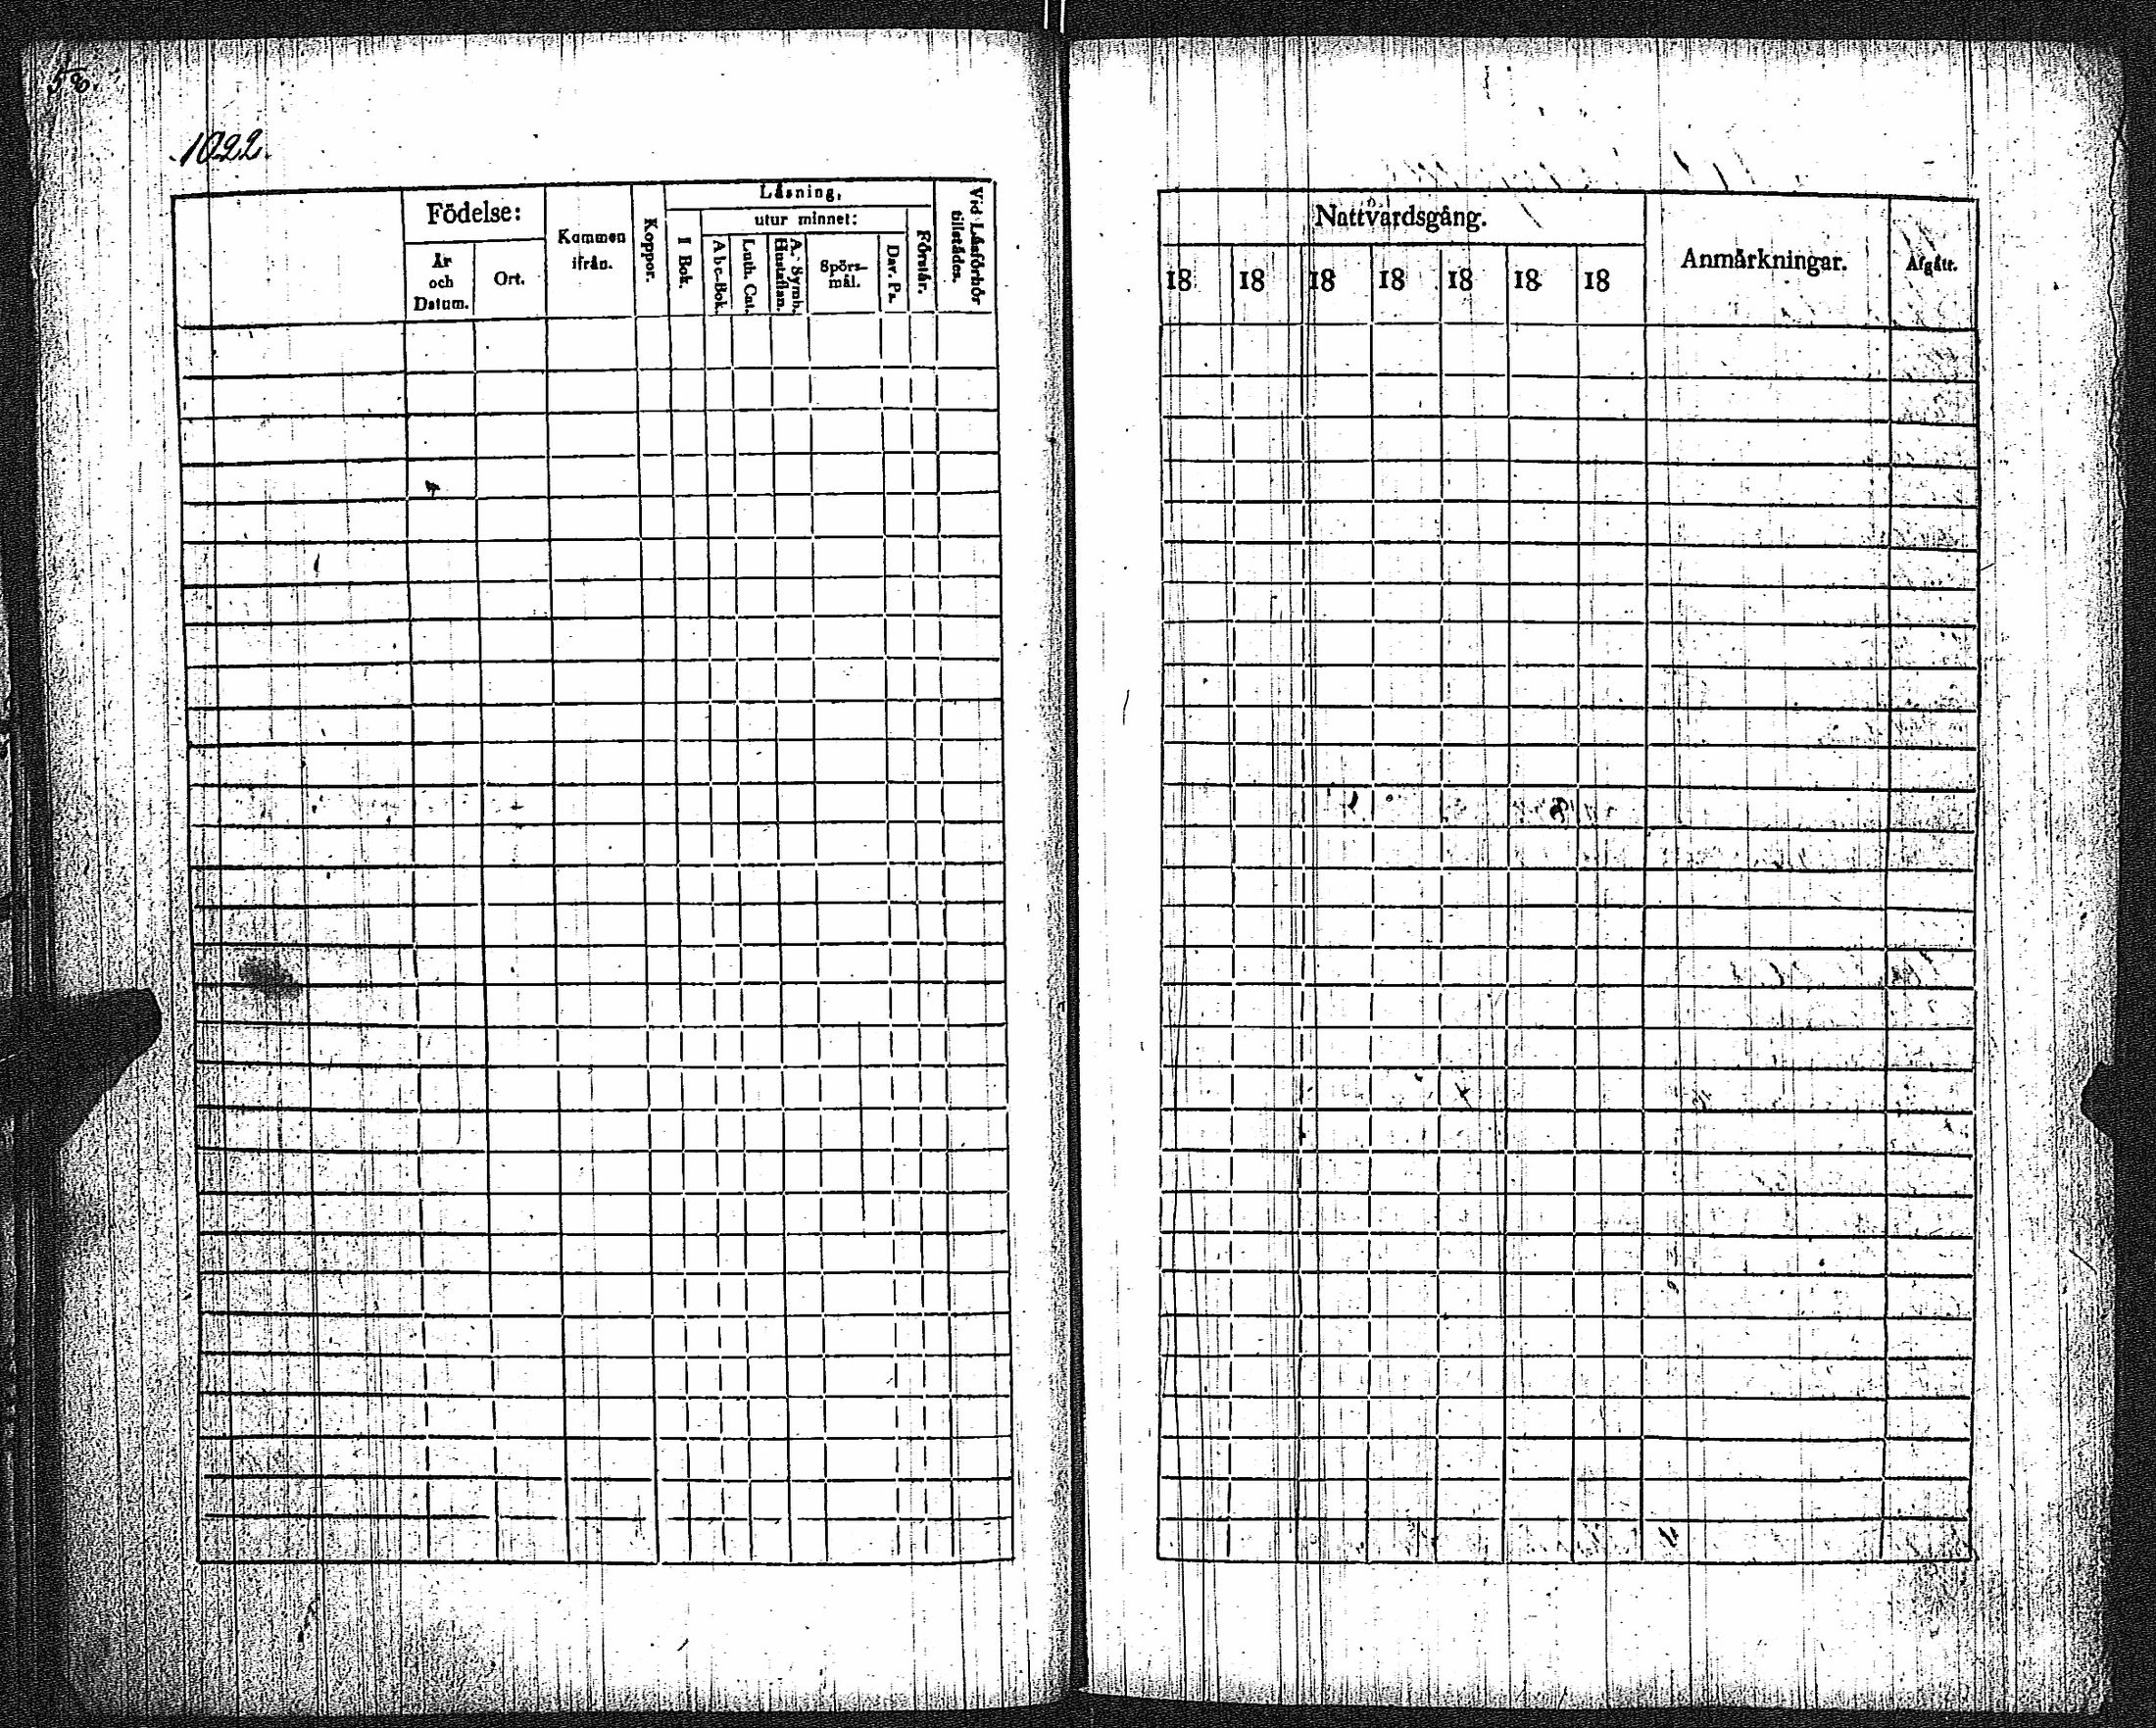 58.
1022.
Födelse:
År och Datum.
Ort.
Kommen ifrån.
Koppor.
Läsning,
I Bok.
utur minnet:
A b c-Bok.
Luth. Cat.
A. Symb. Hustaflan.
Spörs-mål.
Dav. Ps.
Förstår.
Vid Läsförhör tillstädes.
Nattvardsgång.
18 18 18 18 18 18 18
Anmärkningar.
Afgått.